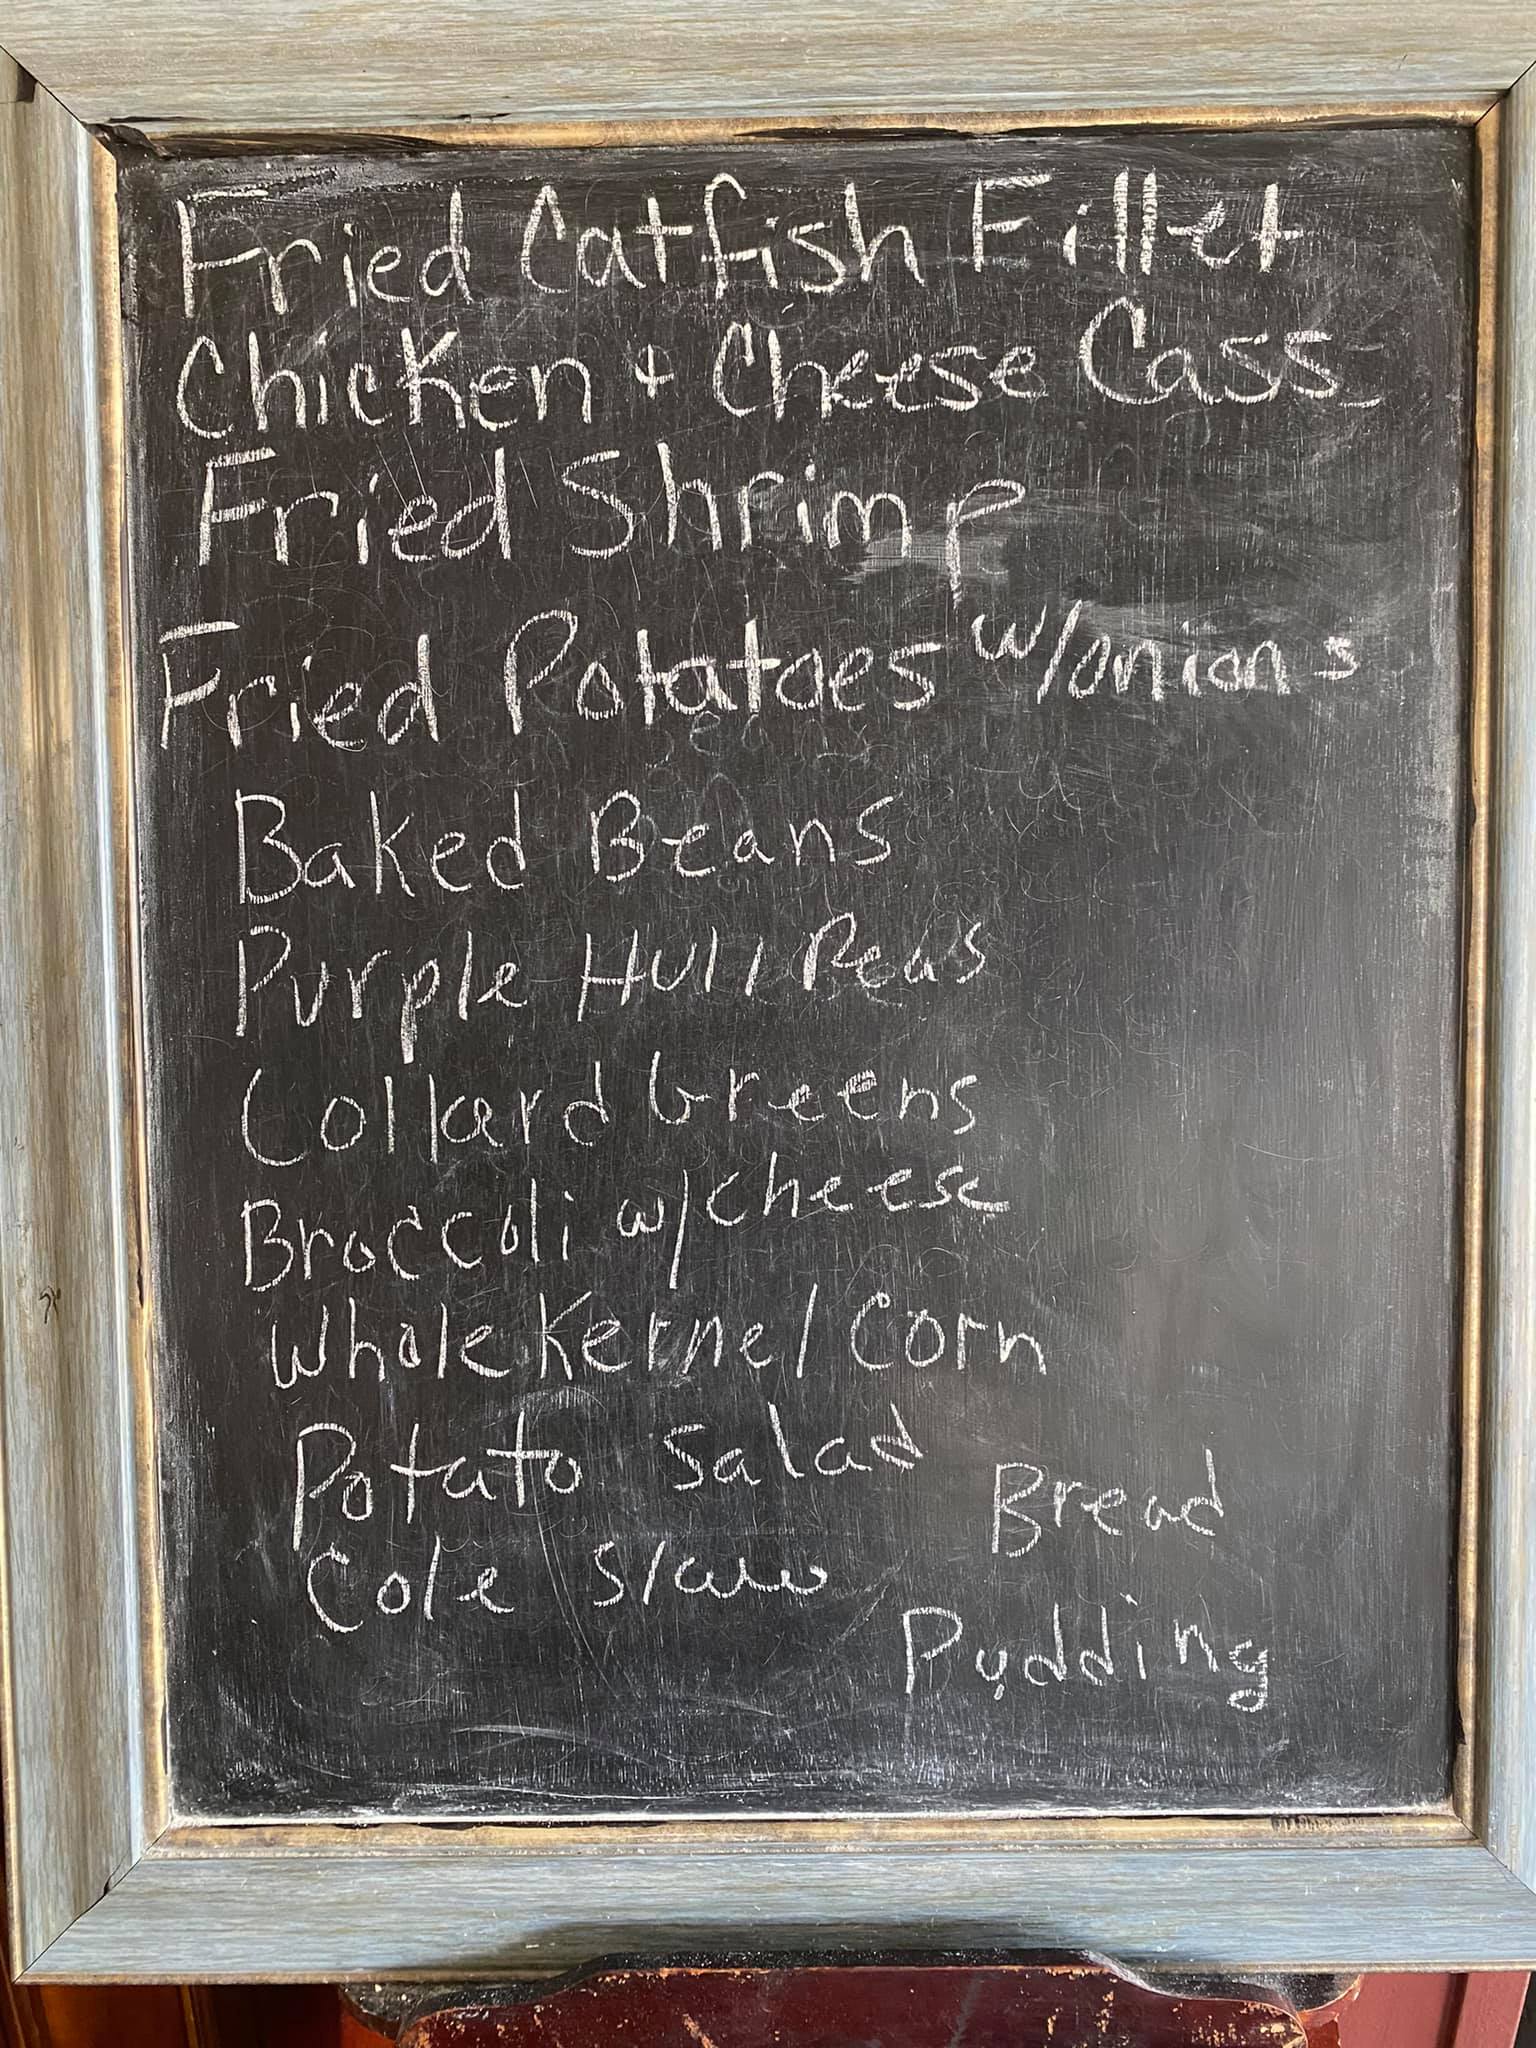 Fried Catfish Fillet
Chicken + Cheese Cass.
Fried Shrimp
Fried Potatoes w/onions
Baked Beans
Purple Hull Peas
Collard Greens
Broccoli w/cheese
Whole Kernel Corn
Potato Salad
Cole Slaw
Bread
Pudding